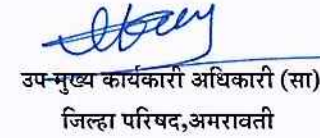 उप मुख्य कार्यकारी अधिकारी (सा)
जिल्हा परिषद,अमरावती